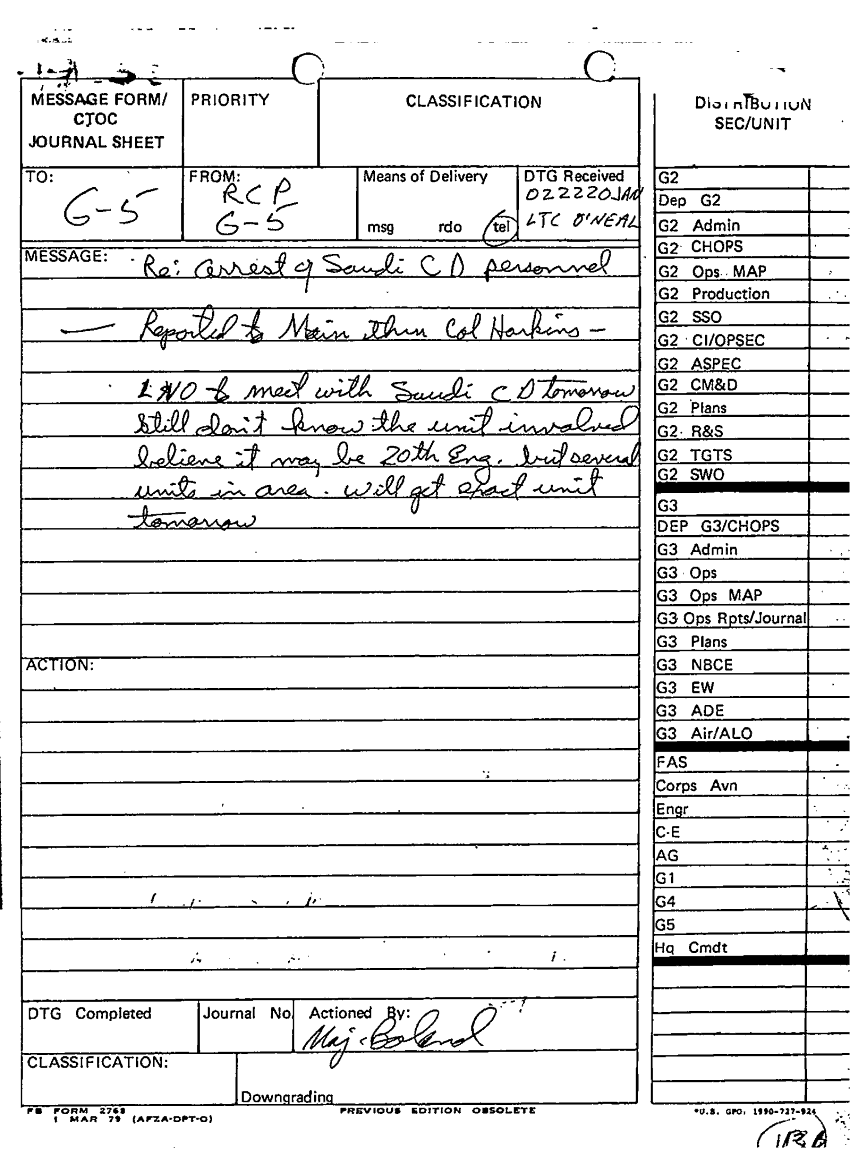 MESSAGE FORM/
CTOC
JOURNAL SHEET
PRIORITY
CLASSIFICATION
TO:
G-5
FROM:
RCP
G-5
Means of Delivery
msg rdo tel
DTG Received
022220JAN
LTC O'NEAL
MESSAGE: Re: arrest of Saudi CD personnel
— Reported to Main thru Col Harkins -
LNO to meet with Saudi CD tomorrow
still don't know the unit involved
believe it may be 20th Eng. but several
units in area. will get exact unit
tomorrow
ACTION:
DTG Completed
Journal No.
Actioned By:
Maj. Boland
CLASSIFICATION:
Downgrading
FB FORM 2768
1 MAR 79 (AFZA-DPT-O)
PREVIOUS EDITION OBSOLETE
DISTRIBUTION
SEC/UNIT
G2
Dep G2
G2 Admin
G2 CHOPS
G2 Ops MAP
G2 Production
G2 SSO
G2 CI/OPSEC
G2 ASPEC
G2 CM&D
G2 Plans
G2 R&S
G2 TGTS
G2 SWO
G3
DEP G3/CHOPS
G3 Admin
G3 Ops
G3 Ops MAP
G3 Ops Rpts/Journal
G3 Plans
G3 NBCE
G3 EW
G3 ADE
G3 Air/ALO
FAS
Corps Avn
Engr
C-E
AG
G1
G4
G5
Hq Cmdt
*U.S. GPO: 1990-727-924